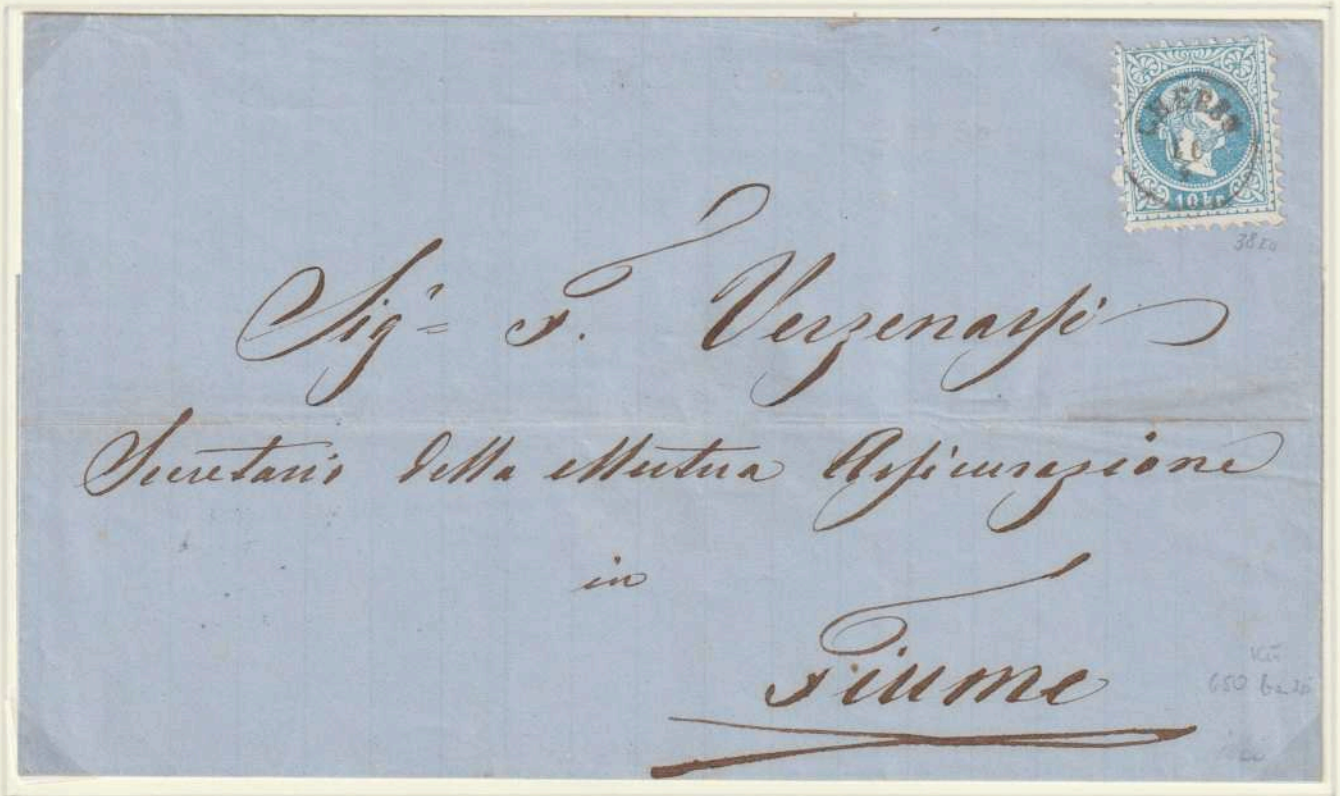 CHERSO
10
10 kr
38 I a
Sig.r F. Verzenassi
Secretario della Mutua Assicurazione
in
Fiume
650